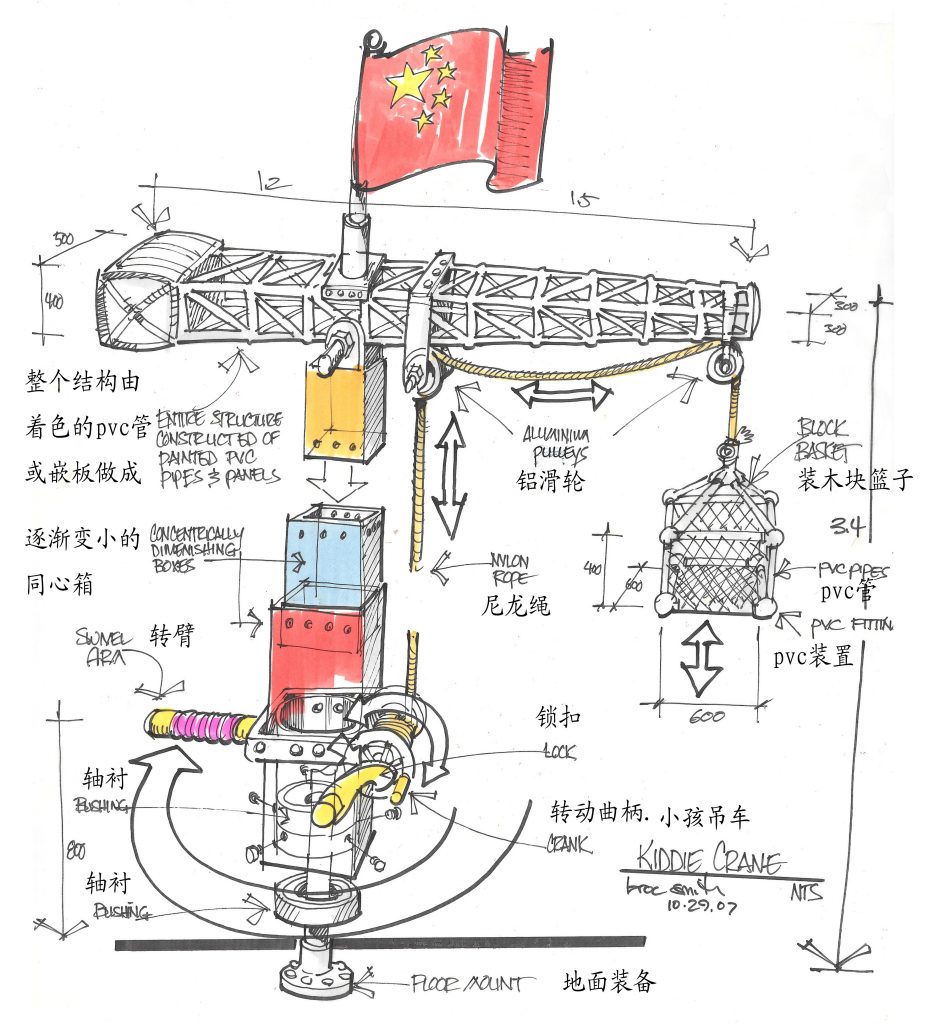 12
1.5
500
400
300
300
整个结构由
着色的pvc管
或嵌板做成
ENTIRE STRUCTURE
CONSTRUCTED OF
PAINTED PVC
PIPES & PANELS
ALUMINIUM
PULLEYS
铝滑轮
BLOCK
BASKET
装木块篮子
3.4
逐渐变小的
同心箱
CONCENTRICALLY
DIMENISHING
BOXES
NYLON
ROPE
尼龙绳
400
600
PVC PIPES
pvc管
PVC FITTIN
pvc装置
600
SWIVEL
ARM
转臂
锁扣
LOCK
轴衬
BUSHING
转动曲柄.
CRANK
小孩吊车
KIDDIE CRANE
broc smith
10.29.07
NTS
800
轴衬
BUSHING
FLOOR MOUNT
地面装备